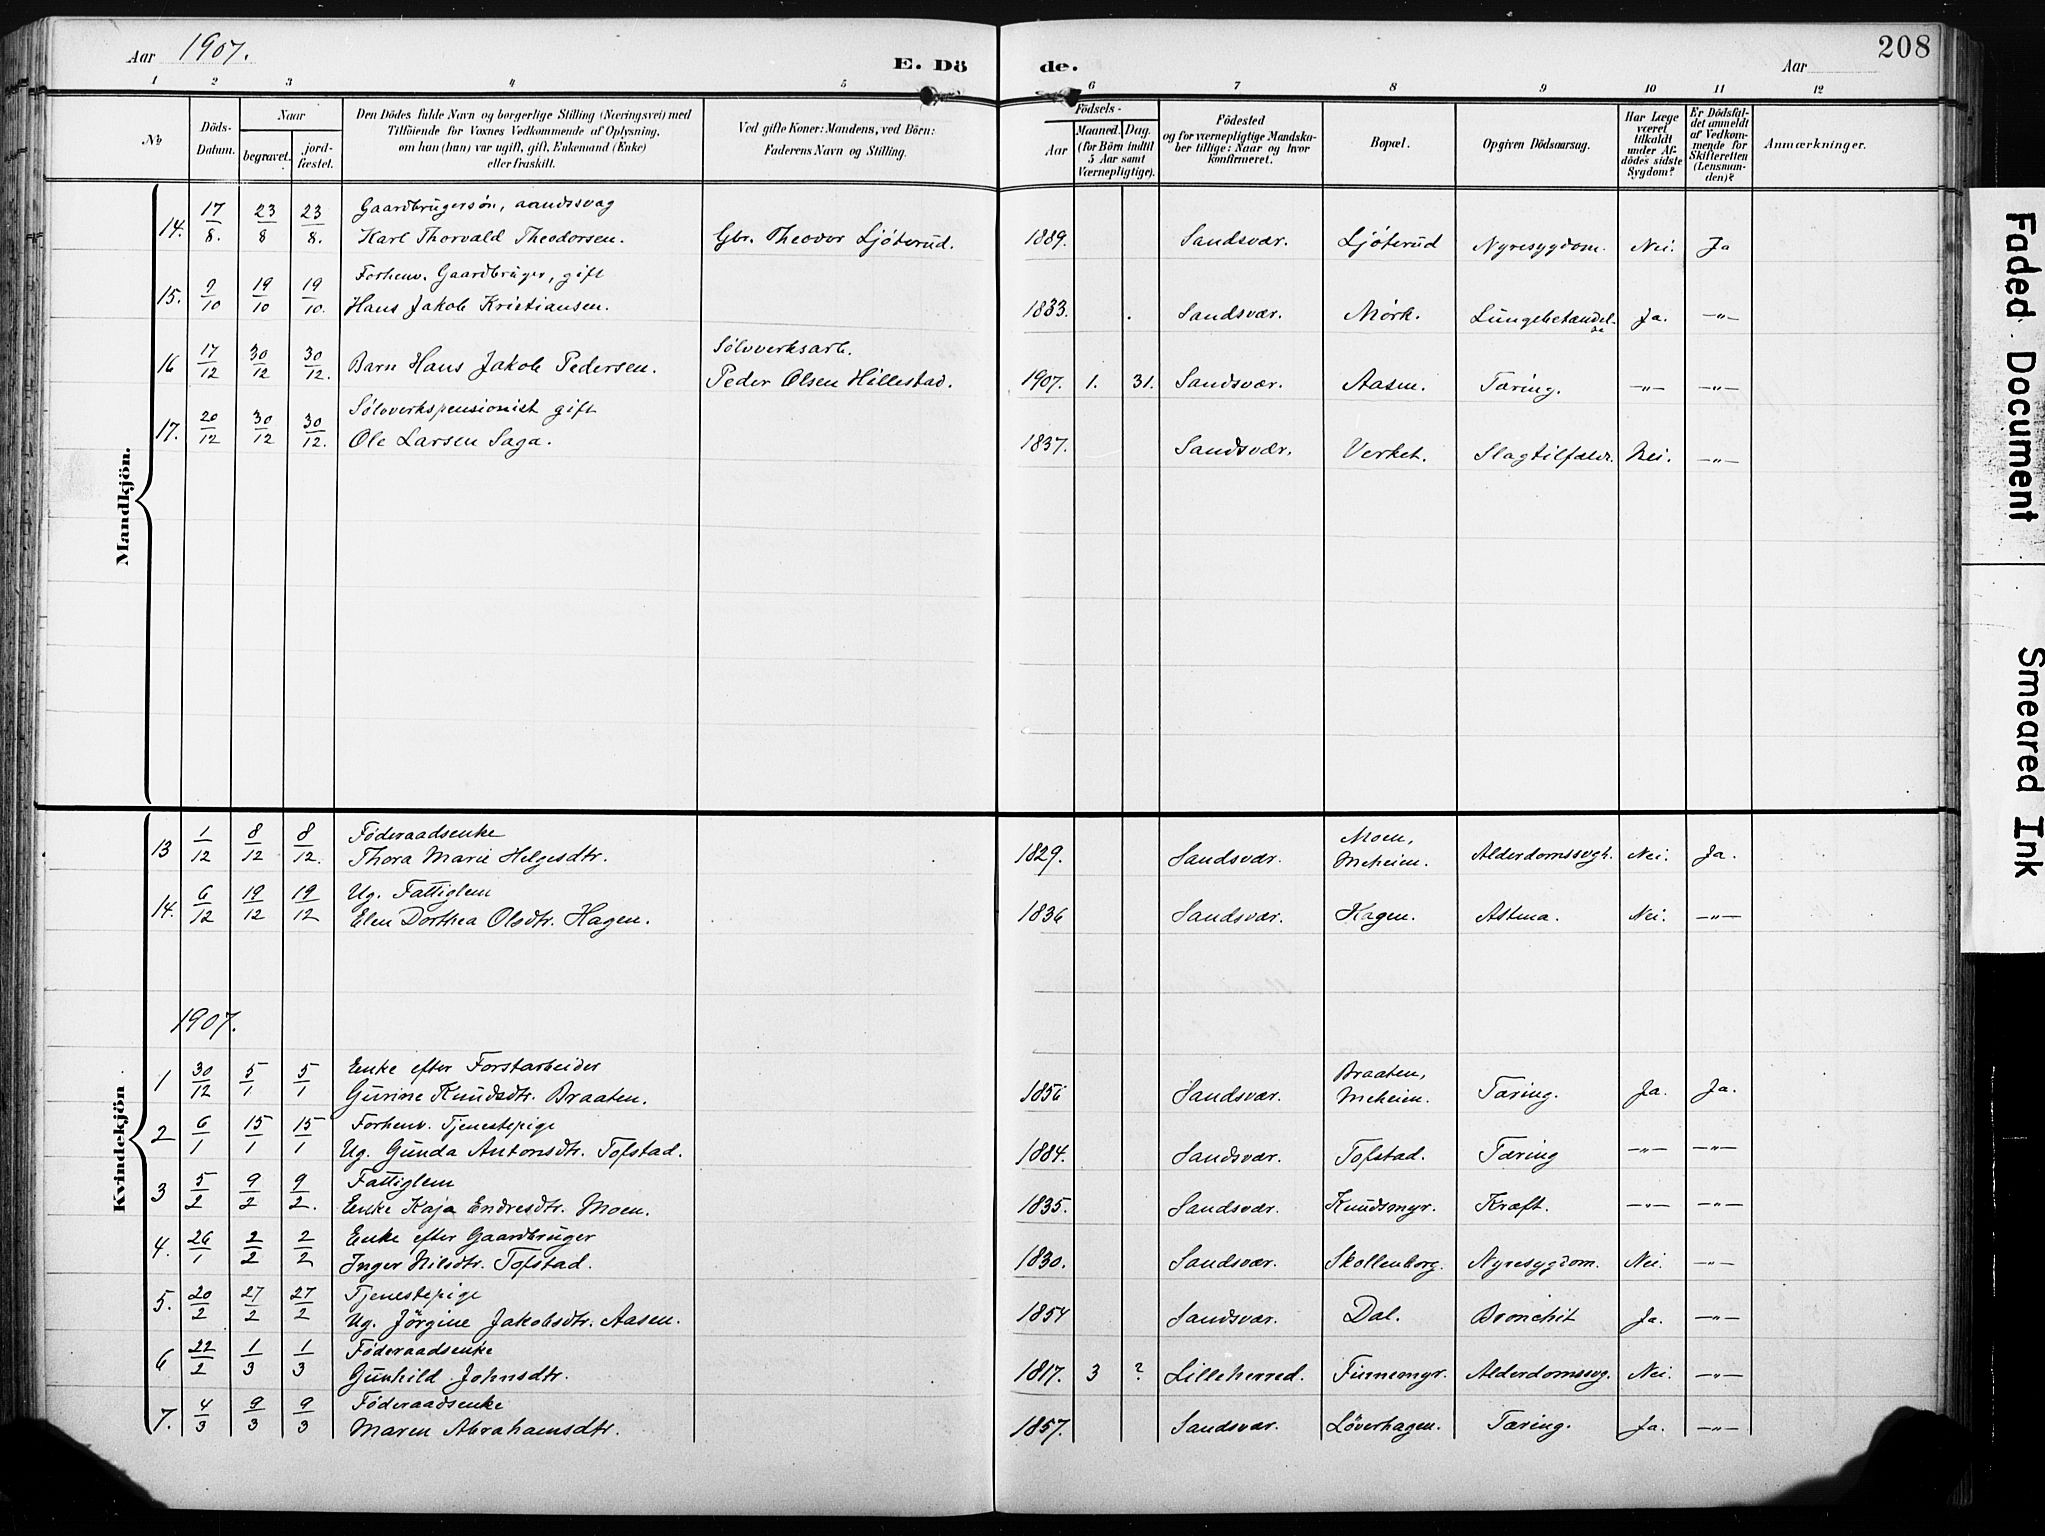 Aar 1907. E. Dö de. Aar 208
1 2 3 4 5 6 7 8 9 10 11 12
No
Döds-Datum.
Naar
begravet. jord-fæstet.
Den Dödes fulde Navn og borgerlige Stilling (Næringsvei) med
Tilföiende for Voxnes Vedkommende af Oplysning,
om han (hun) var ugift, gift, Enkemand (Enke)
eller fraskilt.
Ved gifte Koner: Mandens, ved Börn:
Faderens Navn og Stilling.
Födsels-
Aar Maaned. Dag.
(for Börn indtil
5 Aar samt
Værnepligtige).
Födested
og for værnepligtige Mandska-
ber tillige: Naar og hvor
konfirmeret.
Bopæl.
Opgiven Dödsaarsag.
Har Læge
været
tilkaldt
under Af-
dödes sidste
Sygdom?
Er Dödsfal-
det anmeldt
af Vedkom-
mende for
Skifteretten
(Lensman-
den)?
Anmærkninger.
Mandkjön.
Gaardbrugersøn, aandssvag
14. 17/8. 23/8 23/8. Karl Thorvald Theodorsen. Gbr. Theodor Ljøterud. 1889. Sandsvær. Ljøterud Nyresygdom. Nei. Ja
Forhenv. Gaardbruger, gift
15. 9/10 19/10 19/10. Hans Jakob Kristiansen. 1833. Sandsvær. Mørk. Lungebetændel-
se Ja. -"-
Sølvverksarb.
16 17/12 30/12 30/12. Barn Hans Jakob Pedersen. Peder Olsen Hillestad. 1907. 1. 31. Sandsvær. Aasen. Tæring. -"- -"-
Sølvverkspensionist gift
17. 20/12 30/12 30/12. Ole Larsen Saga. 1837. Sandsvær. Verket. Slagtilfælde. Nei. -"-
Kvindekjön
Føderaadsenke Moen,
13 1/12 8/12 8/12. Thora Marie Helgesdtr. 1829. Sandsvær. Meheien. Alderdomssvgh. Nei. Ja.
Ug. Fattiglem
14. 6/12 19/12 19/12 Elen Dorthea Olsdtr. Hagen. 1836 Sandsvær. Hagen. Astma. Nei. -"-
1907.
Enke efter Forstarbeider Braaten,
1 30/12 5/1 5/1 Gurine Knudsdtr. Braaten. 1856 Sandsvær. Meheien. Tæring. Ja. Ja.
Forhenv. Tjenestepige
2 6/1 15/1 15/1 Ug. Gunda Antonsdtr. Tofstad. 1884. Sandsvær. Tofstad. Tæring -"- -"-
Fattiglem
3 5/2 9/2 9/2. Enke Kaja Endresdtr. Moen. 1835. Sandsvær. Knudsmyr. Kræft. -"- -"-
Enke efter Gaardbruger
4. 26/1 2/2 2/2 Inger Nilsdtr. Tofstad. 1830. Sandsvær. Skollenborg. Nyresygdom. Nei. -"-
Tjenestepige
5. 20/2 27/2 27/2 Ug. Jörgine Jakobsdtr. Aasen. 1854 Sandsvær. Dal. Bronchit Ja. -"-
Føderaadsenke
6 22/2 1/3 1/3 Gunhild Johnsdtr. 1817. 3 ? Lilleherred. Finnemyr. Alderdomssvg. Nei. -"-
Føderaadsenke
7. 4/3 9/3 9/3 Maren Abrahamsdtr. 1857. Sandsvær. Löverhagen. Tæring. Ja. -"-
Faded Document
Smeared Ink